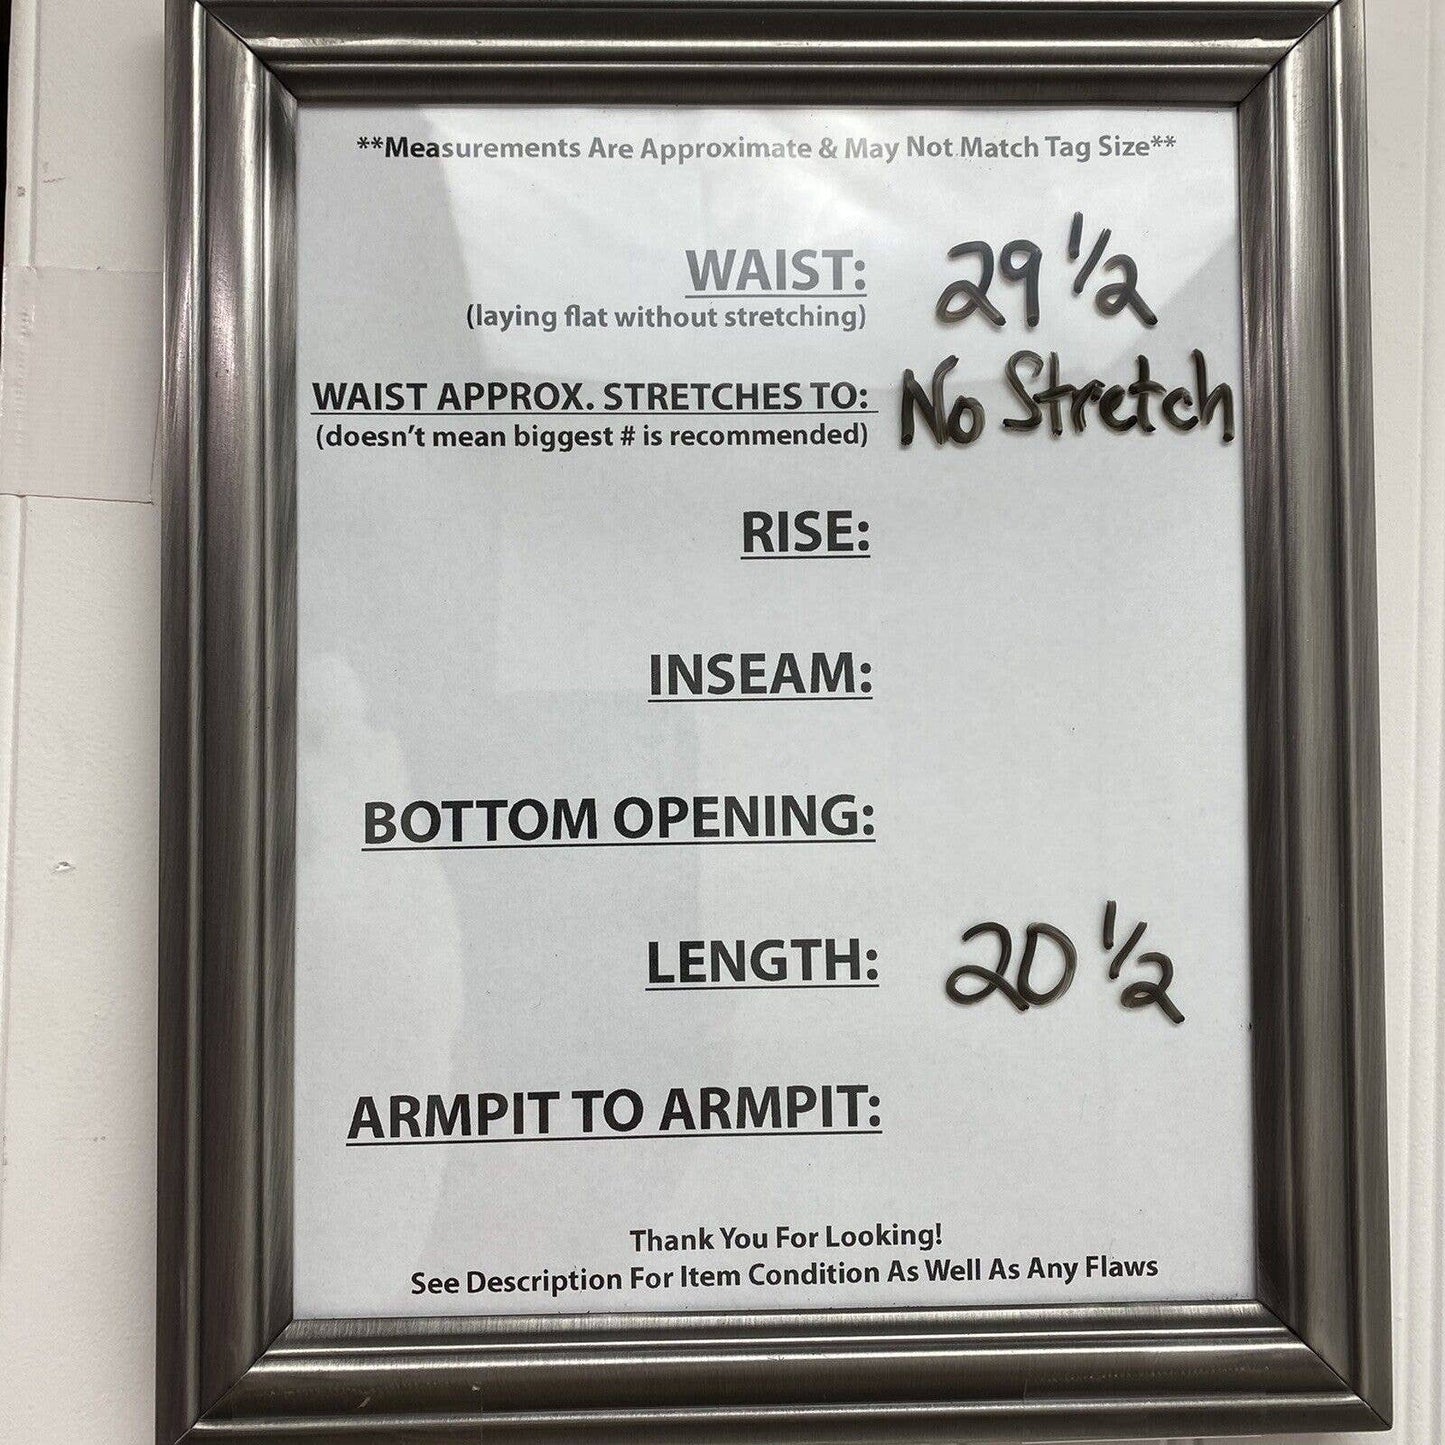 **Measurements Are Approximate & May Not Match Tag Size**
WAIST: 29 1/2
(laying flat without stretching)
WAIST APPROX. STRETCHES TO: No Stretch
(doesn't mean biggest # is recommended)
RISE:
INSEAM:
BOTTOM OPENING:
LENGTH: 20 1/2
ARMPIT TO ARMPIT:
Thank You For Looking!
See Description For Item Condition As Well As Any Flaws